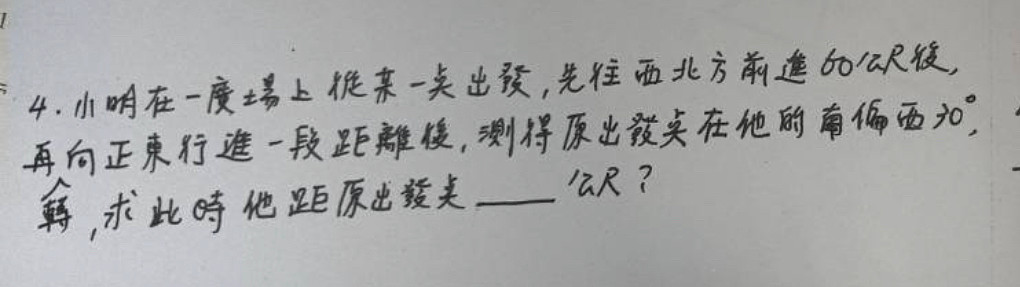 4. 小明在一廣場上從某一点出發,先往西北方前進60公尺後,
再向正東行進一段距離後,測得原出發点在他的南偏西30°,
轉,求此時他距原出發点____公尺?